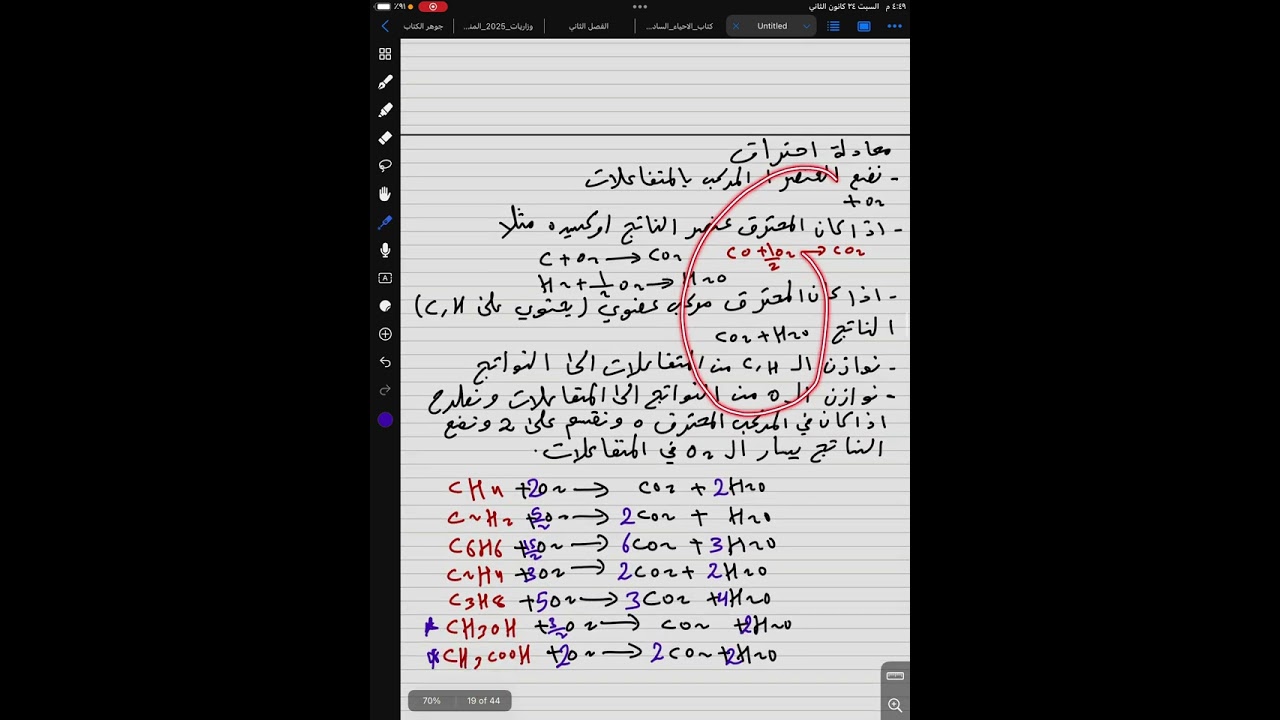 ٤:٤٩ م السبت ٢٤ كانون الثاني
٩١٪
جوهر الكتاب
وزاريات_2025_المنـ...
الفصل الثاني
كتاب_الاحياء_الساد...
Untitled
معادلة احتراق
- نضع العنصر او المركب بالمتفاعلات
+ O2
- اذا كان المحترق عنصر الناتج اوكسيده مثلا
C + O2 → CO2 CO + 1/2 O2 → CO2
H2 + 1/2 O2 → H2O
- اذا كان المحترق مركب عضوي (يحتوي على C,H)
الناتج CO2 + H2O
- نوازن الـ C,H من المتفاعلات الى النواتج
- نوازن الـ O من النواتج الى المتفاعلات ونطرح
اذا كان في المركب المحترق O ونقسم على 2 ونضع
الناتج يسار الـ O2 في المتفاعلات.
CH4 + 2O2 → CO2 + 2H2O
C2H2 + 5/2 O2 → 2CO2 + H2O
C6H6 + 15/2 O2 → 6CO2 + 3H2O
C2H4 + 3O2 → 2CO2 + 2H2O
C3H8 + 5O2 → 3CO2 + 4H2O
* CH3OH + 3/2 O2 → CO2 + 2H2O
* CH3COOH + 2O2 → 2CO2 + 2H2O
70% 19 of 44